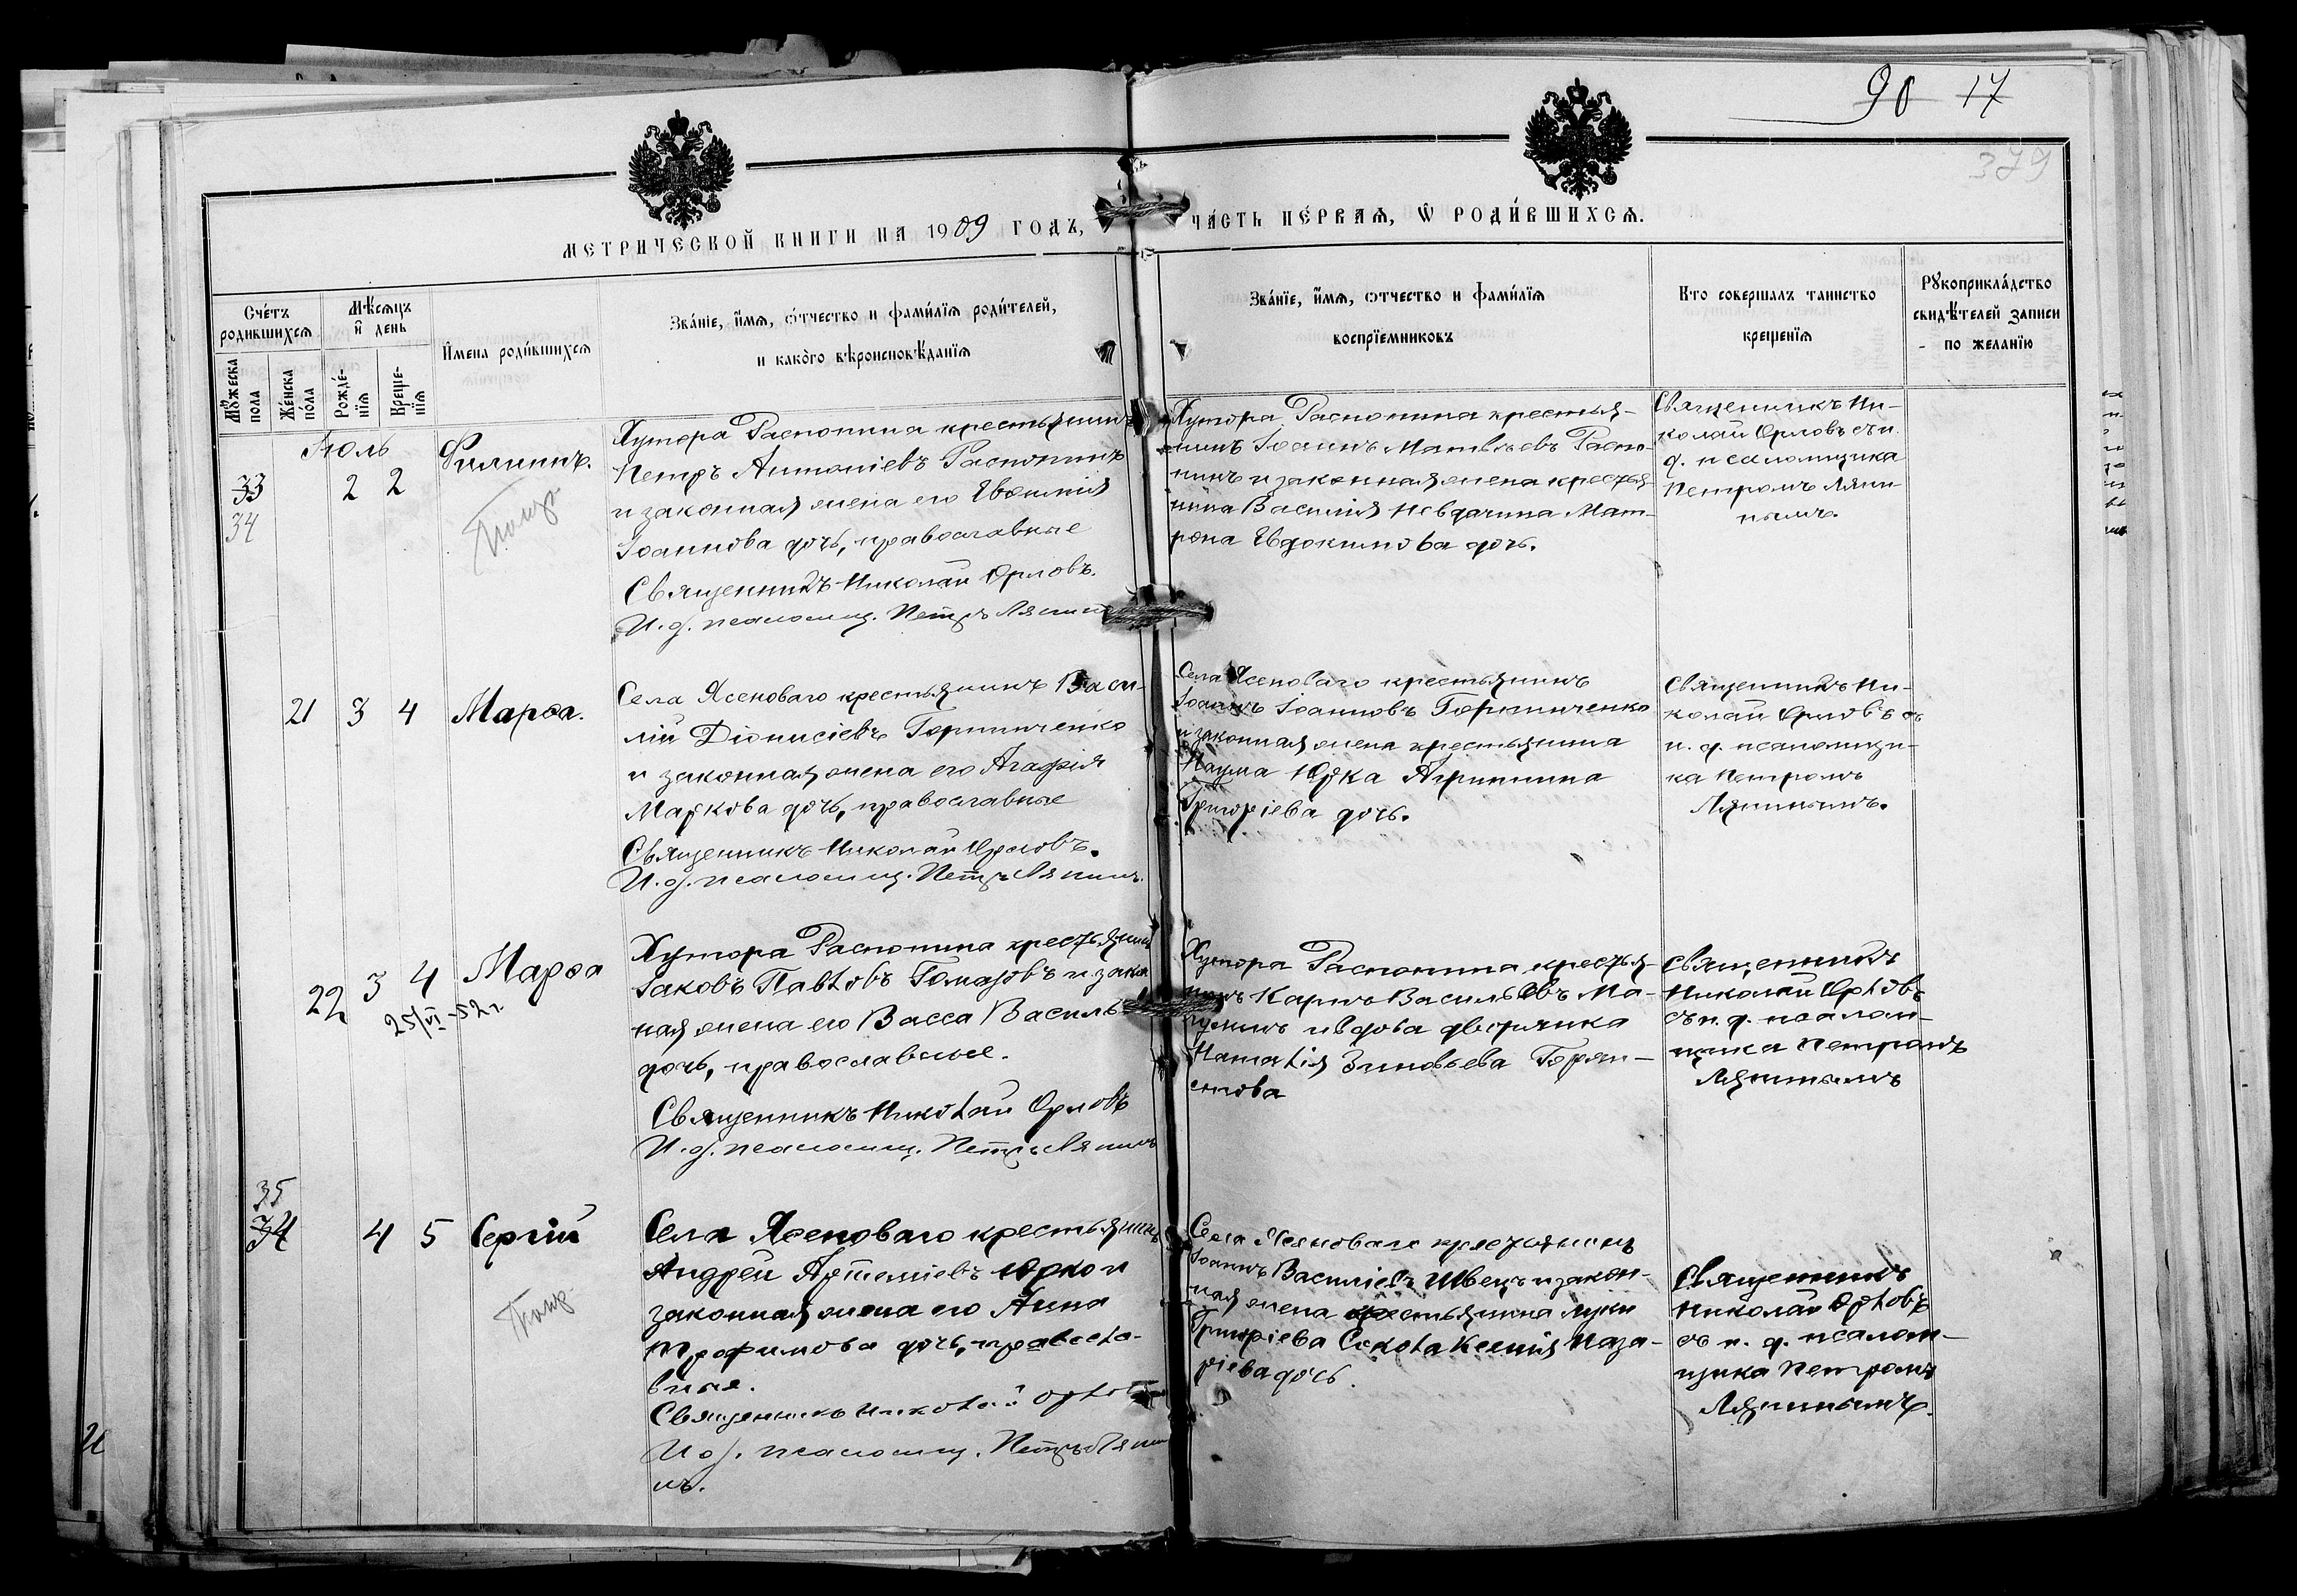 90 17
379
МЕТРИЧЕСКОЙ КНИГИ НА 1909 ГОДЪ,
ЧА́СТЬ ПЕ́РВАѦ, Ѡ҆ РОДИ́ВШИХСѦ.
Сче́тъ родившихсѧ
Мѣ́сѧцъ и҆ день
И҆мена роди́вшихсѧ
Зва́нїе, и҆́мѧ, ѻ҆́тчество и фами́лїѧ роди́телей,
и како́го вѣроисповѣ́данїѧ
Мꙋ́жеска пола
Же́нска по́ла
Рожде́нїѧ
Креще́нїѧ
Зва́нїе, и҆́мѧ, ѻ҆тчество и фами́лїѧ
воспрїемниковъ
Кто совершалъ таинство
креще́нїѧ
Рꙋкоприкла́дство
свидѣ́телей записи
по жела́нїю
Іюль
33
34
2 2
Филиппъ.
Хутора Распопина крестьянинъ
Петръ Антоніевъ Распопинъ
и законная жена его Евѳимія
Іоаннова дочь, православные
Священникъ Николай Орловъ.
И. д. псаломщ. Петръ Ляпинъ
Хутора Распопина крестья-
нинъ Іоаннъ Матвѣевъ Распо-
пинъ и законная жена крестья-
нина Василія Невдачина Мат-
рона Евдокимова дочь.
Священникъ Ни-
колай Орловъ съ и.
д. псаломщика
Петромъ Ляпи-
нымъ.
21 3 4
Марѳа.
Села Ясеноваго крестьянинъ Васи-
лій Діонисіевъ Горпинченко
и законная жена его Агафія
Маркова дочь, православные
Священникъ Николай Орловъ.
И. д. псаломщ. Петръ Ляпинъ.
Села Ясеноваго крестьянинъ
Іоаннъ Іоанновъ Горпинченко
и законная жена крестьянина
Наума Юрка Агриппина
Григоріева дочь.
Священникъ Ни-
колай Орловъ съ
и. д. псаломщи-
ка Петромъ
Ляпинымъ.
22 3 4
25/VI-52 г.
Марѳа
Хутора Распопина крестьянинъ
Іаковъ Павловъ и закон
ная жена его Васса Василь
дочь, православные.
Священникъ Николай Орловъ
И. д. псаломщ. Петръ Ляпинъ
Хутора Распопина крестья-
нинъ Карпъ Васильевъ
и вдова дворянка
Наталія Зиновьева
Священникъ
Николай Орловъ
съ и. д. псалом-
щика Петромъ
Ляпинымъ
35
34
4 5
Сергій
Села Ясеноваго крестьянинъ
Андрей Артеміевъ Юрко и
законная жена его Анна
Трофимова дочь, правосла-
вные.
Священникъ Николай Орловъ
И. д. псаломщ. Петръ Ляпи
нъ.
Села Ясеноваго крестьянинъ
Іоаннъ Василіевъ Швецъ и закон-
ная жена крестьянина Луки
Григоріева Сокола Ксенія Наза-
ріева дочь.
Священникъ
Николай Орловъ
съ и. д. псалом-
щика Петромъ
Ляпинымъ.